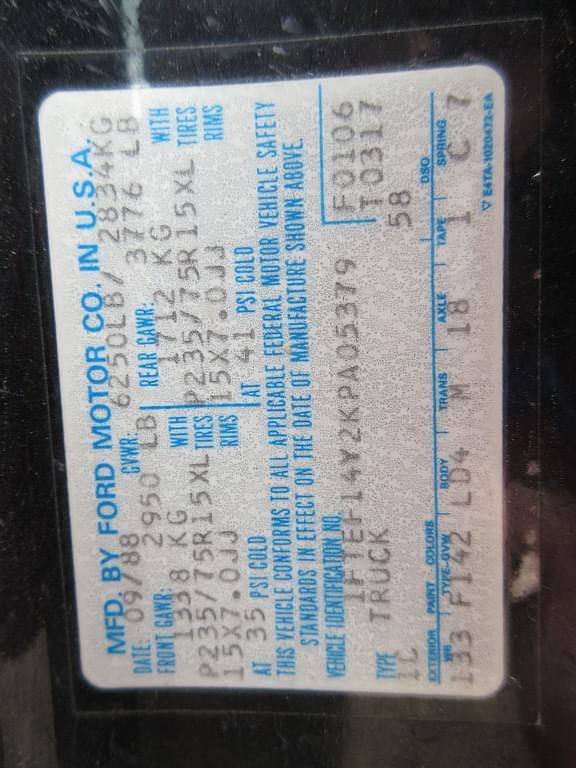 MFD. BY FORD MOTOR CO. IN U.S.A.
DATE: 09/88 GVWR: 6250LB/ 2834KG
FRONT GAWR: 2950 LB REAR GAWR: 3776 LB
1338 KG WITH 1712 KG WITH
P235/75R15XL TIRES P235/75R15XL TIRES
15X7.0JJ RIMS 15X7.0JJ RIMS
AT 35 PSI COLD AT 41 PSI COLD
THIS VEHICLE CONFORMS TO ALL APPLICABLE FEDERAL MOTOR VEHICLE SAFETY
STANDARDS IN EFFECT ON THE DATE OF MANUFACTURE SHOWN ABOVE.
VEHICLE IDENTIFICATION NO.
1FTEF14Y2KPA05379 F0106
TYPE TRUCK T0317
1L 58
EXTERIOR PAINT COLORS DSO
WB TYPE-GVW BODY TRANS AXLE TAPE SPRING
133 F142 LD4 M 18 1 C 7
▽ E4TA-1020472-EA